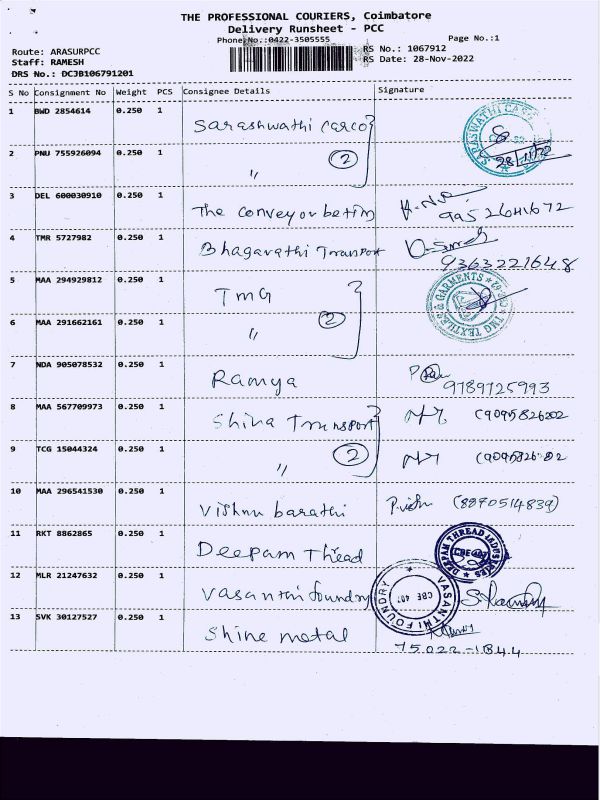 THE PROFESSIONAL COURIERS, Coimbatore
Delivery Runsheet - PCC
Phone No.:0422-3505555
Page No.:1
Route: ARASURPCC
RS No.: 1067912
Staff: RAMESH
RS Date: 28-Nov-2022
DRS No.: DCJB106791201
S No Consignment No Weight PCS Consignee Details Signature
1 BWD 2854614 0.250 1 Sarashwathi Carco
SARASWATHI
28/11/22
2 PNU 755926094 0.250 1 〃 2
3 DEL 600030910 0.250 1 The conveyor beting 9952641672
4 TMR 5727982 0.250 1 Bhagavathi Transport
9363221648
5 MAA 294929812 0.250 1 TMG
TMG TEXTILE & GARMENTS
6 MAA 291662161 0.250 1 〃 2
7 NDA 905078532 0.250 1 Ramya 9789725993
8 MAA 567709973 0.250 1 Shiva Transport
9 TCG 15044324 0.250 1 〃 2
10 MAA 296541530 0.250 1 Vishnu barathi (8870514839)
11 RKT 8862865 0.250 1 Deepam Thread
DEEPAM THREAD INDUSTRIES
12 MLR 21247632 0.250 1 Vasanthi foundry
VASANTHI FOUNDRY
CBE 407
13 SVK 30127527 0.250 1 Shine metal
75022-1844